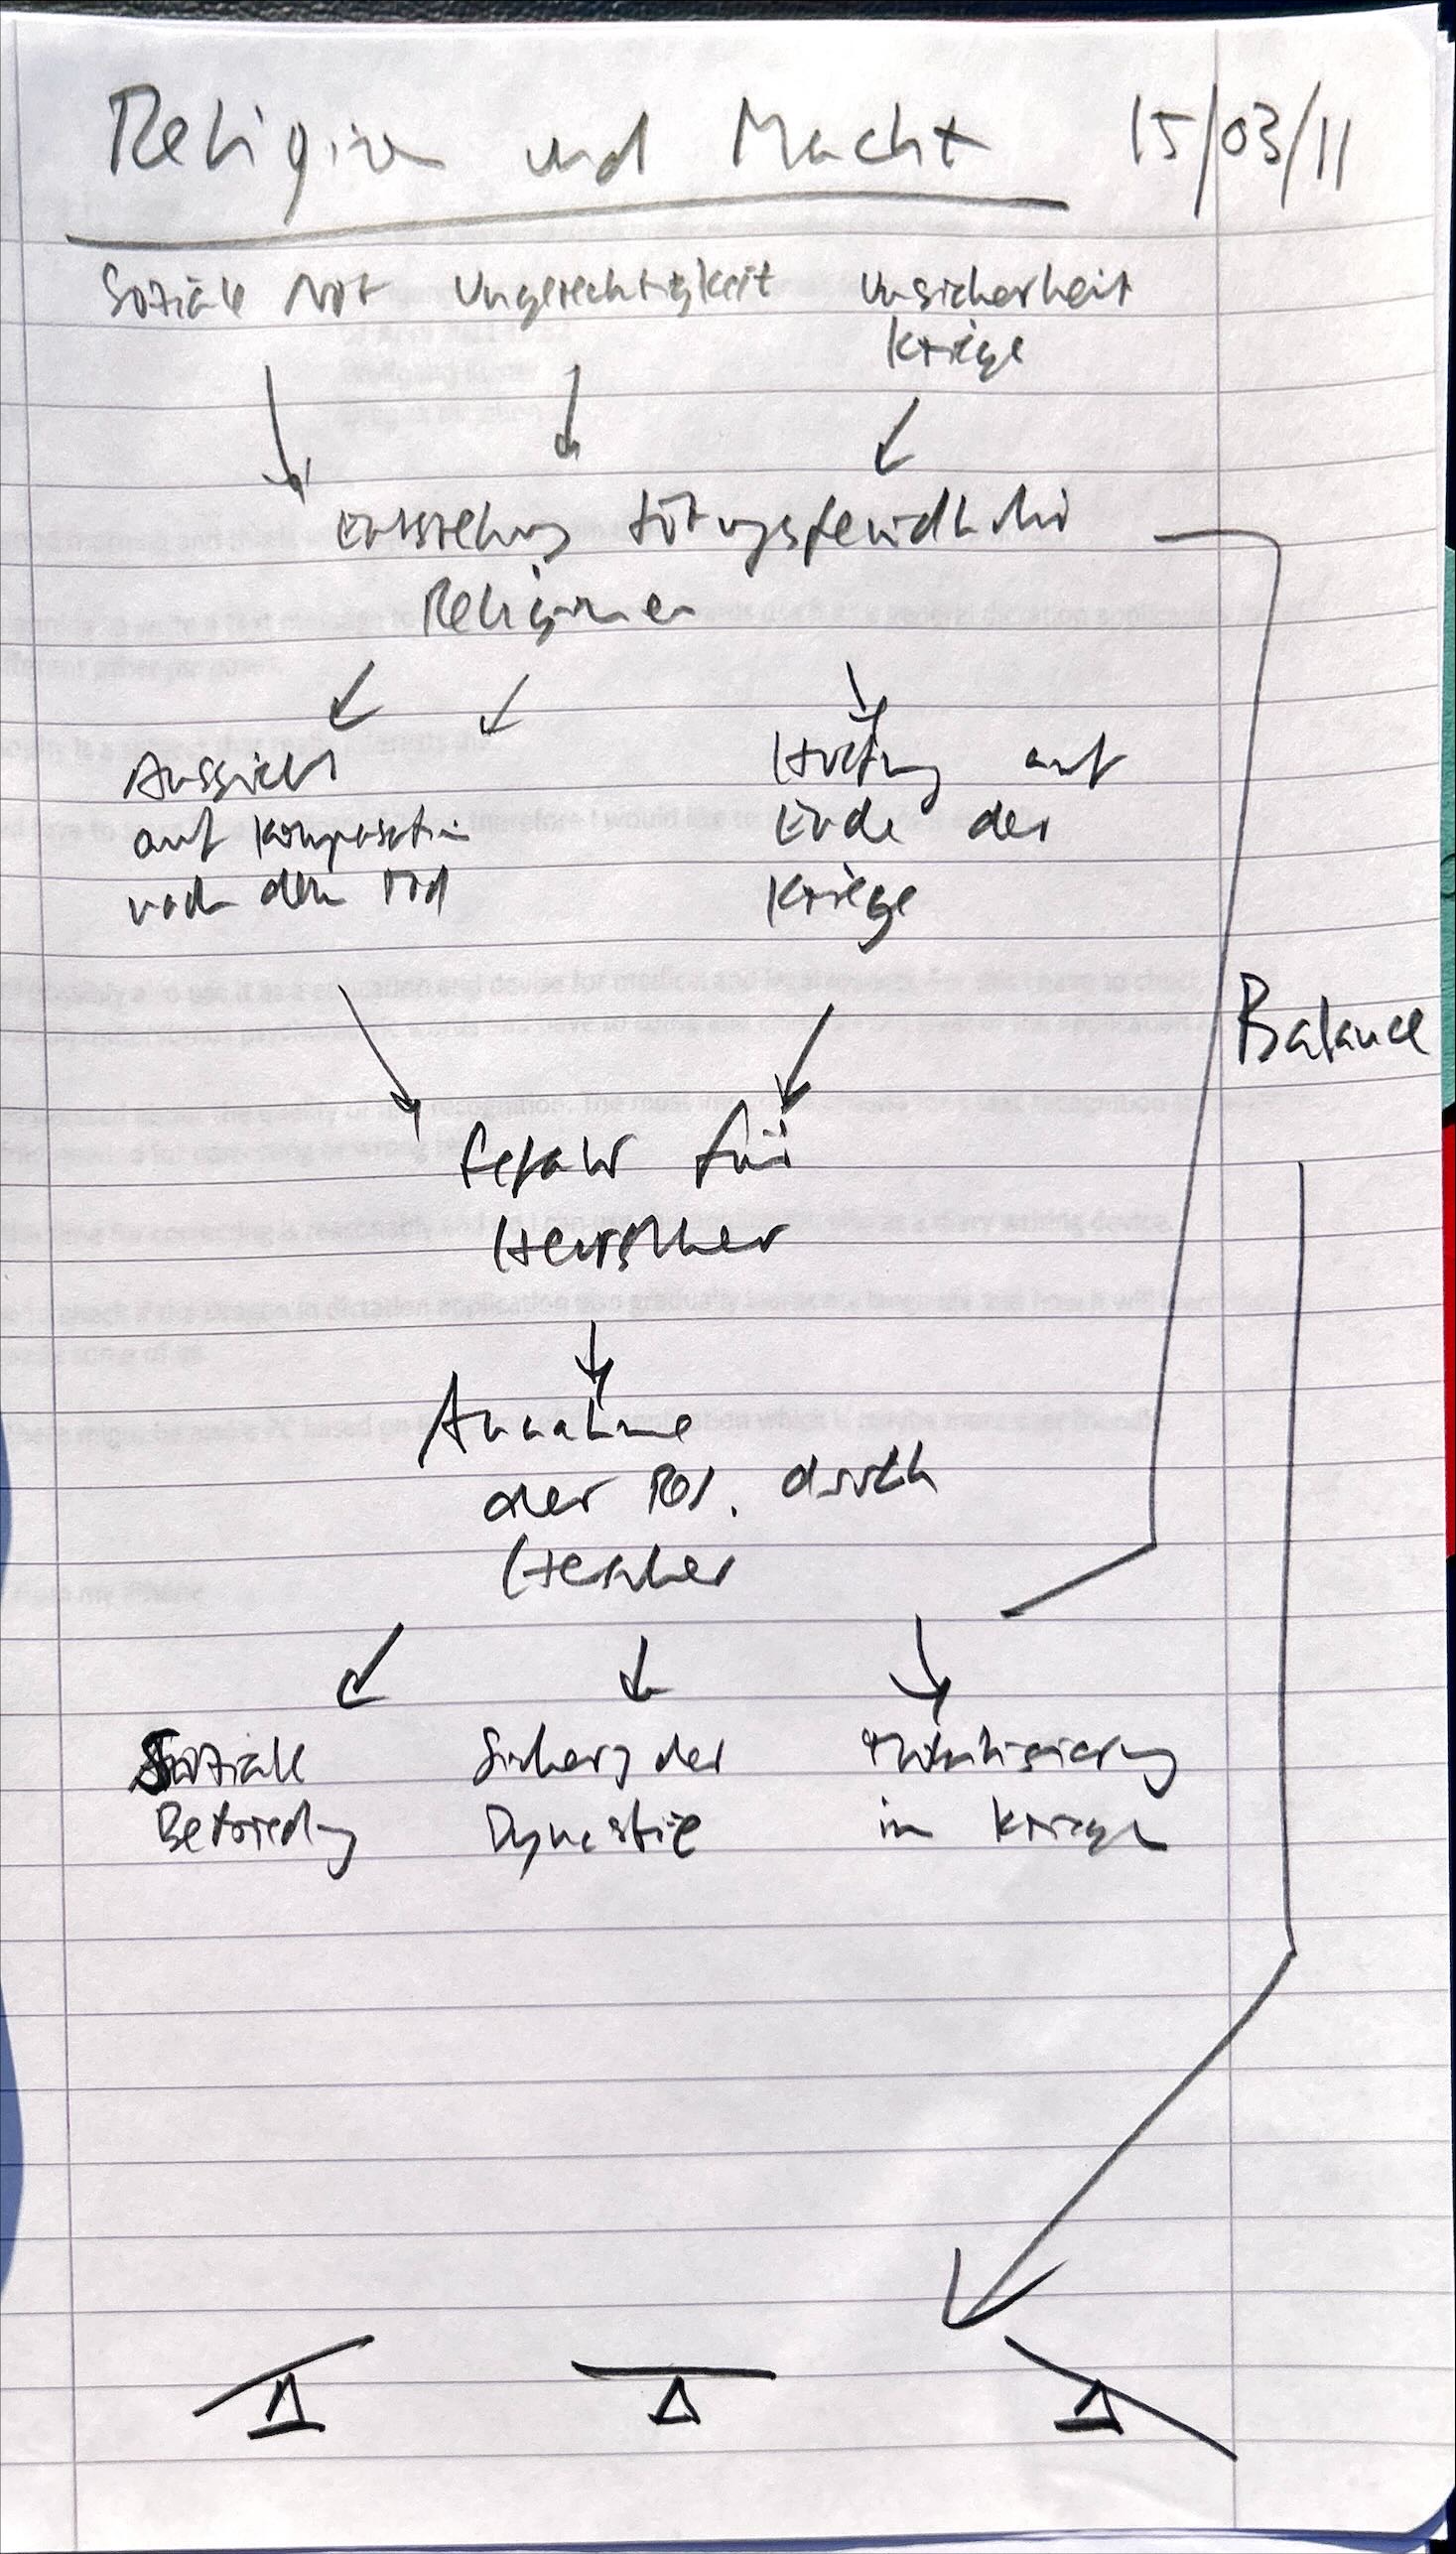 Religion und Macht 15/03/11
Soziale Not Ungerechtigkeit Unsicherheit
Kriege
Entstehung tötungsfeindlicher
Religionen
Aussicht
auf Kompensation
nach dem Tod
Hoffnung auf
Ende der
Kriege
Balance
Gefahr für
Herrscher
Annahme
der Rel. durch
Herrscher
Soziale
Befriedung
Sicherung der
Dynastie
Mobilisierung
in Kriegen